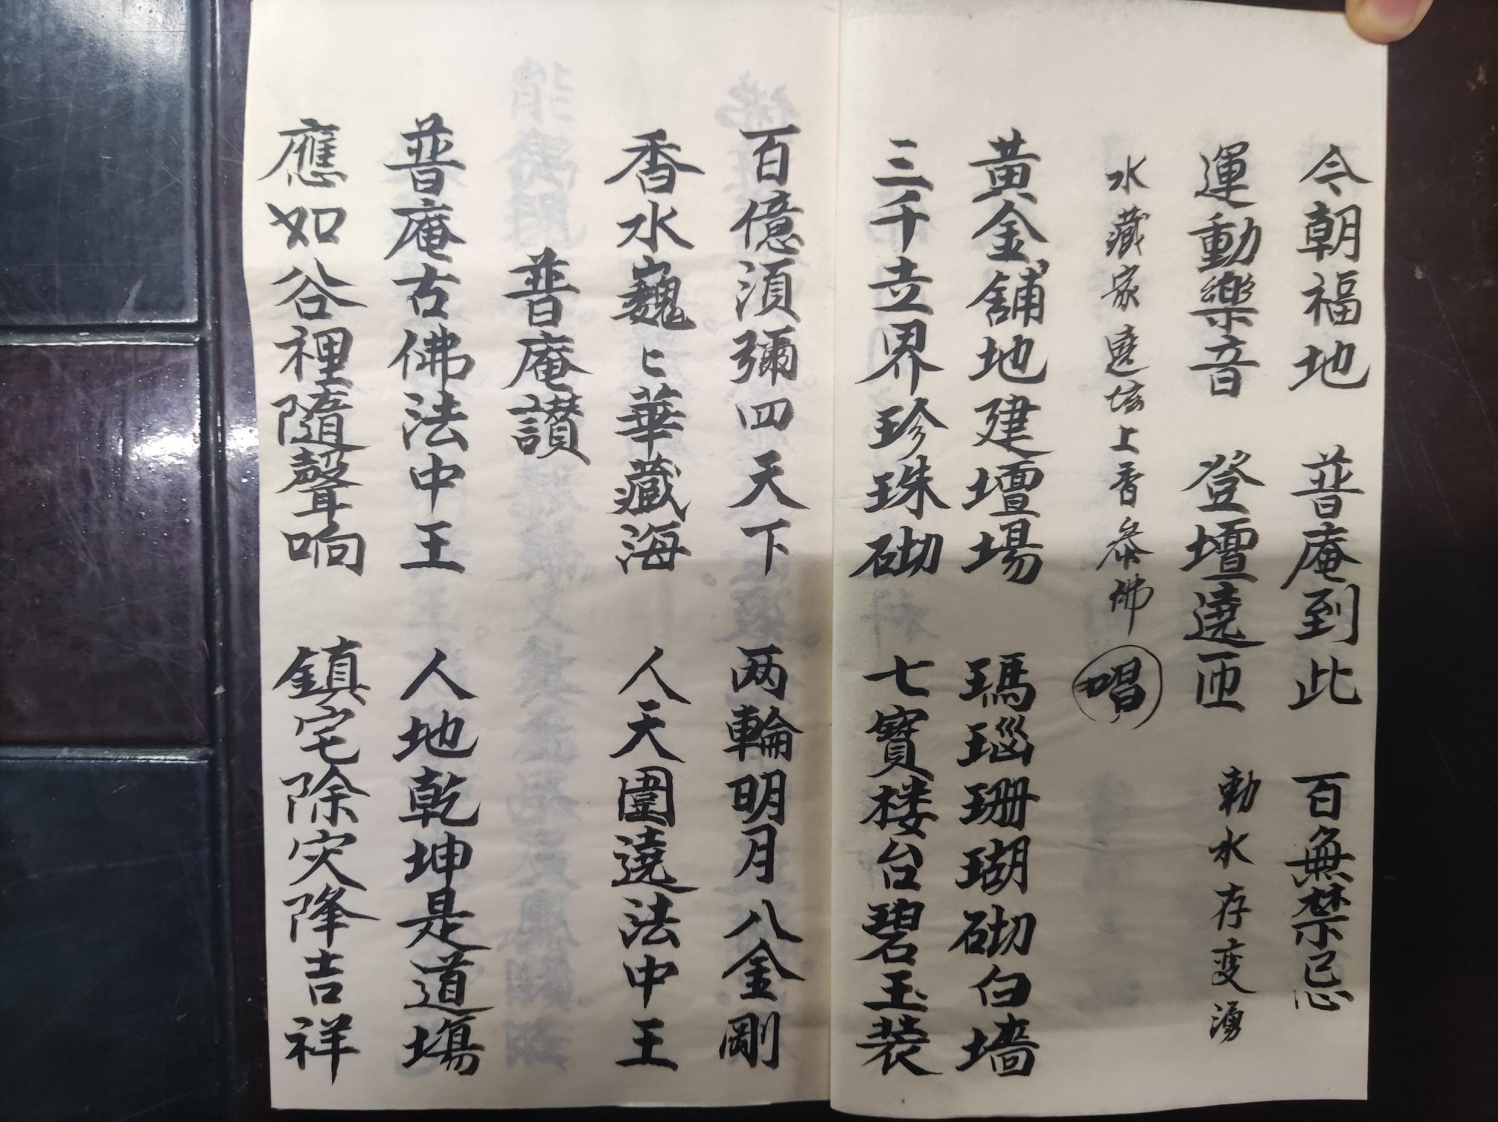 今朝福地　普庵到此　百無禁忌
運動樂音　登壇遶匝　勅水存变湧
水藏家遶坛上香参佛　唱
黃金舖地建壇場　瑪瑙珊瑚砌白墻
三千立界珍珠砌　七寶楼台碧玉装
百億湏彌四天下　两輪明月八金剛
香水巍〻華藏海　人天圍遶法中王
普庵讃
普庵古佛法中王　人地乾坤是道塲
應如谷裡隨聲响　鎮宅除灾降吉祥